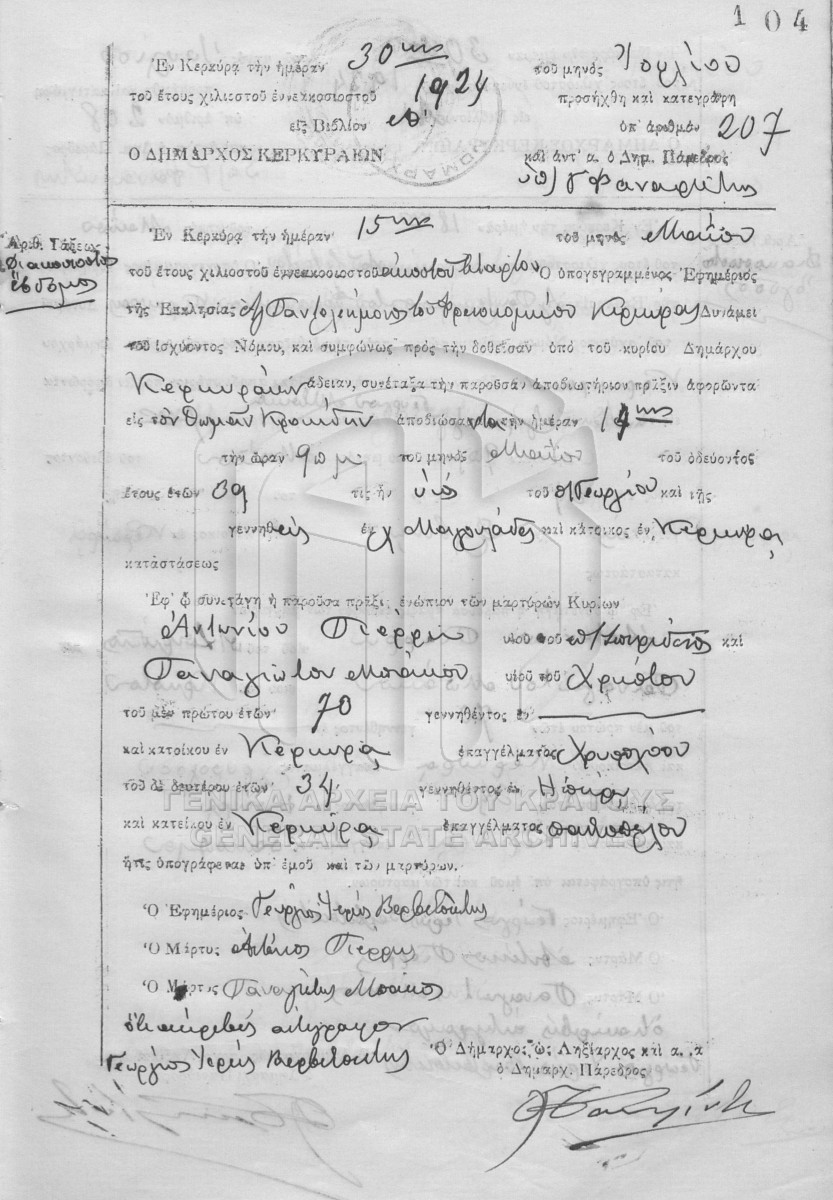 104
Ἐν Κερκύρᾳ τὴν ἡμέραν 30ην τοῦ μηνὸς Ἰουλίου
τοῦ ἔτους χιλιοστοῦ ἐννεακοσιοστοῦ 1924 προσήχθη καὶ κατεγράφη
εἰς Βιβλίον ὑπ' ἀριθμὸν 207
Ο ΔΗΜΑΡΧΟΣ ΚΕΡΚΥΡΑΙΩΝ καὶ ἀντ' α. ὁ Δημ. Πάρεδρος
Ἀριθ. Τάξεως
Διακοσιοστὸς
ἕβδομος
Ἐν Κερκύρᾳ τὴν ἡμέραν 15ην τοῦ μηνὸς Μαΐου
τοῦ ἔτους χιλιοστοῦ ἐννεακοσιοστοῦ εἰκοστοῦ τετάρτου Ὁ ὑπογεγραμμένος Ἐφημέριος
τῆς Ἐκκλησίας Ἁγ Παντελεήμονος τοῦ Κερκύρας Δυνάμει
τοῦ ἰσχύοντος Νόμου, καὶ συμφώνως πρὸς τὴν δοθεῖσαν ὑπὸ τοῦ κυρίου Δημάρχου
Κερκυραίων ἄδειαν, συνέταξα τὴν παροῦσαν ἀποδιωτήριον πρᾶξιν ἀφορῶντα
εἰς τὸν Θωμᾶν ἀποδιώσαντα τὴν ἡμέραν 14ην
τὴν ὥραν 9 π μ τοῦ μηνὸς Μαΐου τοῦ ὁδεύοντος
ἔτους ἐτῶν 39 τις ἦν υἱὸς τοῦ Γεωργίου καὶ τῆς
γεννηθεὶς ἐν καὶ κάτοικος ἐν Κερκύρᾳ
καταστάσεως
Ἐφ' ᾧ συνετάγη ἡ παροῦσα πρᾶξις ἐνώπιον τῶν μαρτύρων Κυρίων
Ἀντωνίου Πιέρρη υἱοῦ τοῦ Σπυρίδωνος καὶ
Παναγιώτου Μπάκου υἱοῦ τοῦ Χρήστου
τοῦ μὲν πρώτου ἐτῶν 70 γεννηθέντος ἐν
καὶ κατοίκου ἐν Κερκύρᾳ ἐπαγγέλματος
τοῦ δὲ δευτέρου ἐτῶν 34 γεννηθέντος ἐν Ἠπείρῳ
καὶ κατοίκου ἐν Κερκύρᾳ ἐπαγγέλματος παντοπώλου
ἥτις ὑπογράφεται ὑπ' ἐμοῦ καὶ τῶν μαρτύρων.
Ὁ Ἐφημέριος Γεώργιος Ἱερεὺς Βερβιτσιώτης
Ὁ Μάρτυς Ἀντώνιος Πιέρρης
Ὁ Μάρτυς Παναγιώτης Μπάκος
Ὅτι ἀκριβὲς ἀντίγραφον
Γεώργιος Ἱερεὺς Βερβιτσιώτης
Ὁ Δήμαρχος ὡς Ληξίαρχος καὶ α. α
ὁ Δημαρχ. Πάρεδρος
ΓΕΝΙΚΑ ΑΡΧΕΙΑ ΤΟΥ ΚΡΑΤΟΥΣ
GENERAL STATE ARCHIVES